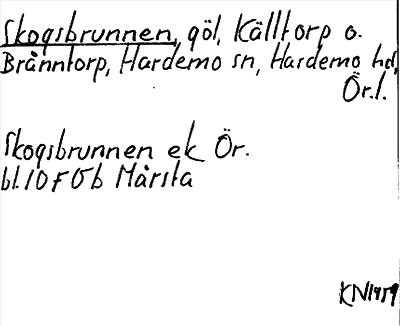 Skogsbrunnen, göl, Källtorp o.
Brånntorp, Hardemo sn, Hardemo hd,
Ör.l.
Skogsbrunnen ek Ör.
bl.10F5b Mårsta
KN1959